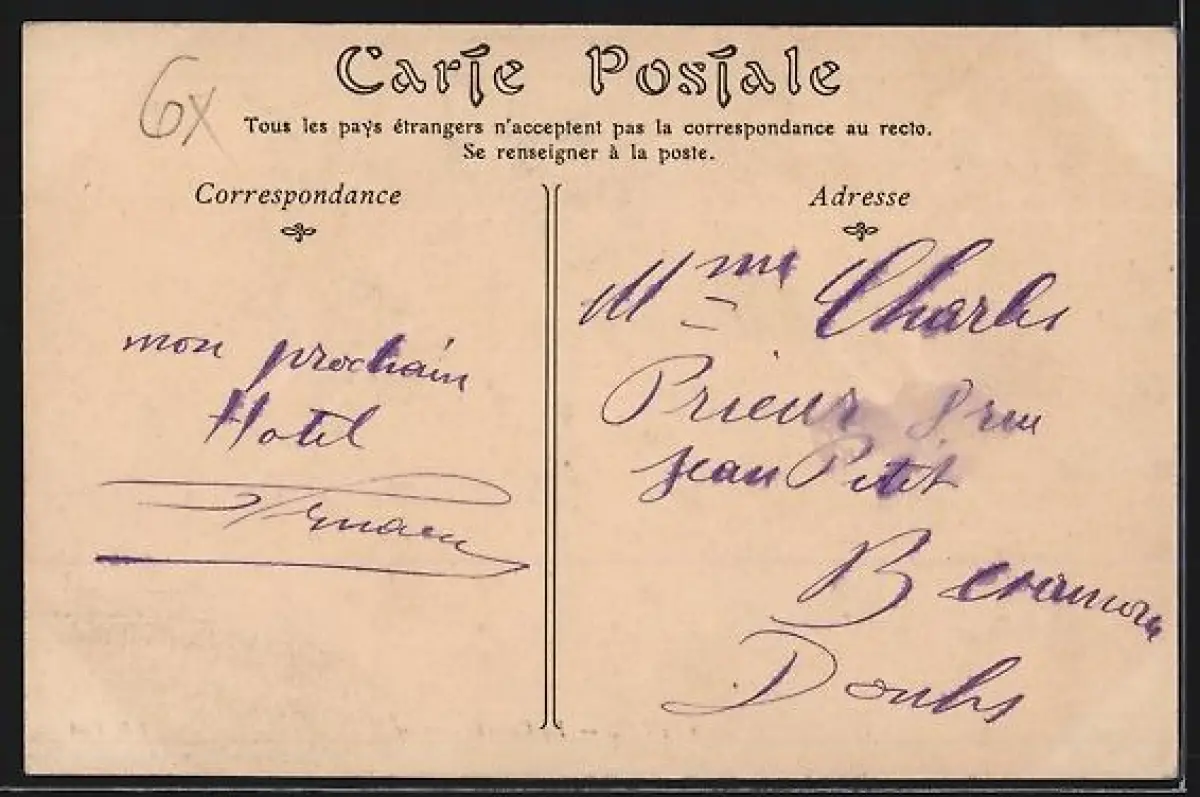 6x
Carte Postale
Tous les pays étrangers n'acceptent pas la correspondance au recto.
Se renseigner à la poste.
Correspondance
mon prochain
Hotel
Adresse
Mme Charles
Prieur 8 rue
Jean Petit
Doubs